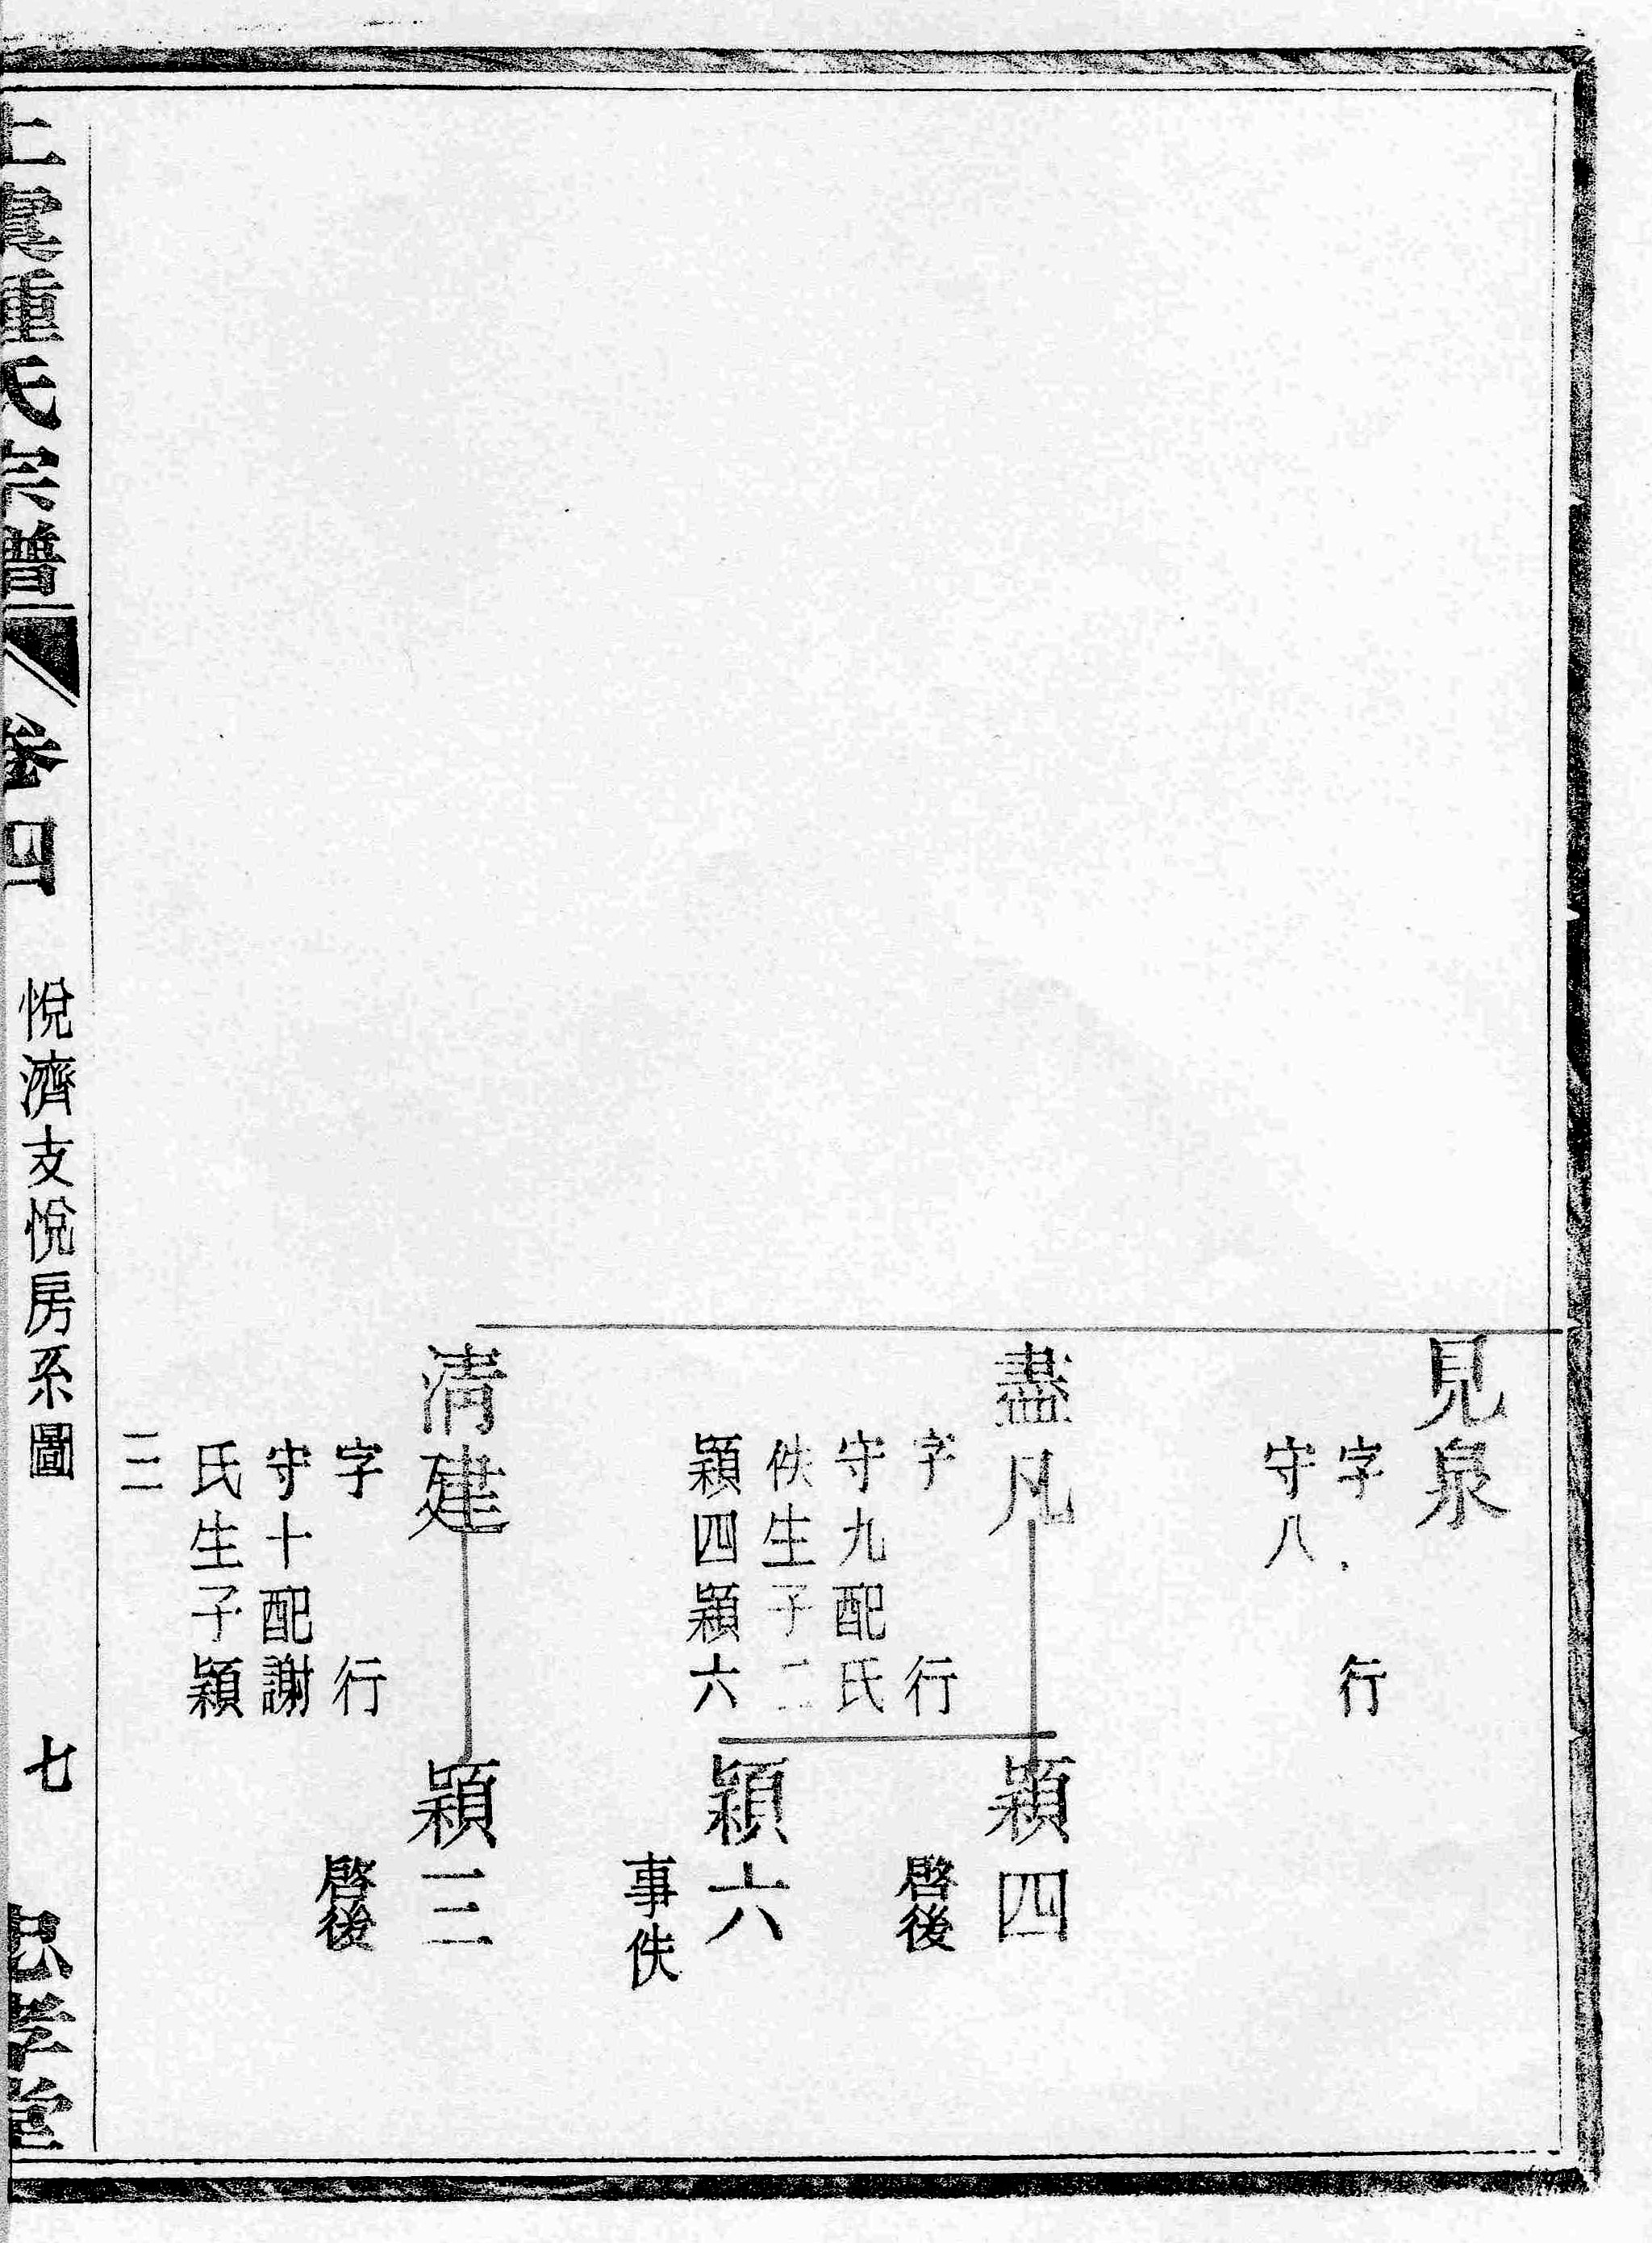 見泉
字　行
守八
盡凡
字　行
守九配氏
佚生子二
穎四穎六
穎四
啓後
穎六
事佚
清建
字　行
守十配謝
氏生子穎
三
穎三
啓後
上虞
氏宗譜
卷四
悅濟支悅房系圖
七
忠孝堂